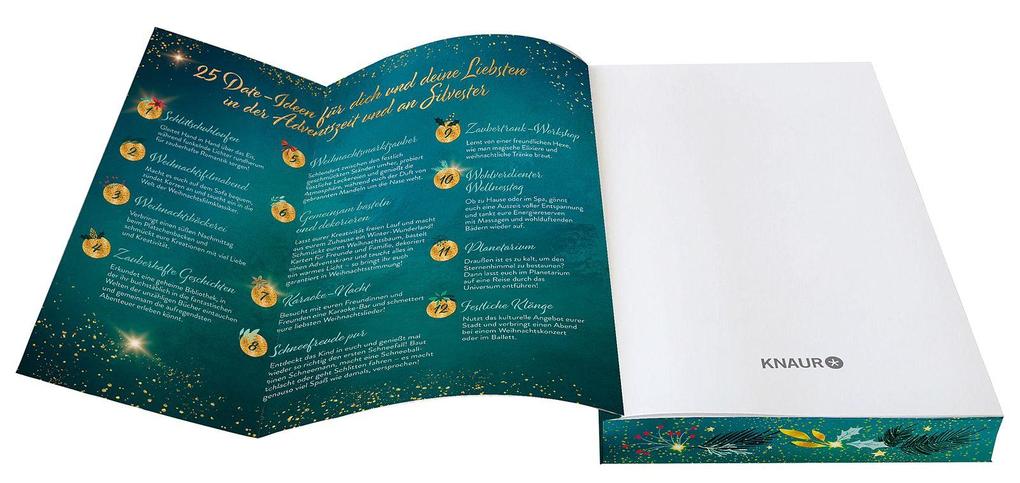 25 Date-Ideen für dich und deine Liebsten
in der Adventszeit und an Silvester
1
Schlittschuhlaufen
Gleitet Hand in Hand über das Eis,
während funkelnde Lichter rundherum
für zauberhafte Romantik sorgen!
2
Weihnachtsfilmabend
Macht es euch auf dem Sofa bequem,
zündet Kerzen an und taucht ein in die
Welt der Weihnachtsfilmklassiker.
3
Weihnachtsbäckerei
Verbringt einen süßen Nachmittag
beim Plätzchenbacken und
schmückt eure Kreationen mit viel Liebe
und Kreativität.
4
Zauberhafte Geschichten
Erkundet eine geheime Bibliothek, in
der ihr buchstäblich in die fantastischen
Welten der unzähligen Bücher eintauchen
und gemeinsam die aufregendsten
Abenteuer erleben könnt.
5
Weihnachtsmarktzauber
Schlendert zwischen den festlich
geschmückten Ständen umher, probiert
köstliche Leckereien und genießt die
Atmosphäre, während euch der Duft von
gebrannten Mandeln um die Nase weht.
6
Gemeinsam basteln
und dekorieren
Lasst eurer Kreativität freien Lauf und macht
aus eurem Zuhause ein Winter-Wunderland!
Schmückt euren Weihnachtsbaum, bastelt
Karten für Freunde und Familie, dekoriert
einen Adventskranz und taucht alles in
ein warmes Licht – so bringt ihr euch
garantiert in Weihnachtsstimmung!
7
Karaoke-Nacht
Besucht mit euren Freundinnen und
Freunden eine Karaoke-Bar und schmettert
eure liebsten Weihnachtslieder!
8
Schneefreude pur
Entdeckt das Kind in euch und genießt mal
wieder so richtig den ersten Schneefall! Baut
einen Schneemann, macht eine Schneeball-
schlacht oder geht Schlitten fahren – es macht
genauso viel Spaß wie damals, versprochen!
9
Zaubertrank-Workshop
Lernt von einer freundlichen Hexe,
wie man magische Elixiere und
weihnachtliche Tränke braut.
10
Wohlverdienter
Wellnesstag
Ob zu Hause oder im Spa, gönnt
euch eine Auszeit voller Entspannung
und tankt eure Energiereserven
mit Massagen und wohlduftenden
Bädern wieder auf.
11
Planetarium
Draußen ist es zu kalt, um den
Sternenhimmel zu bestaunen?
Dann lasst euch im Planetarium
auf eine Reise durch das
Universum entführen!
12
Festliche Klänge
Nutzt das kulturelle Angebot eurer
Stadt und verbringt einen Abend
bei einem Weihnachtskonzert
oder im Ballett.
KNAUR